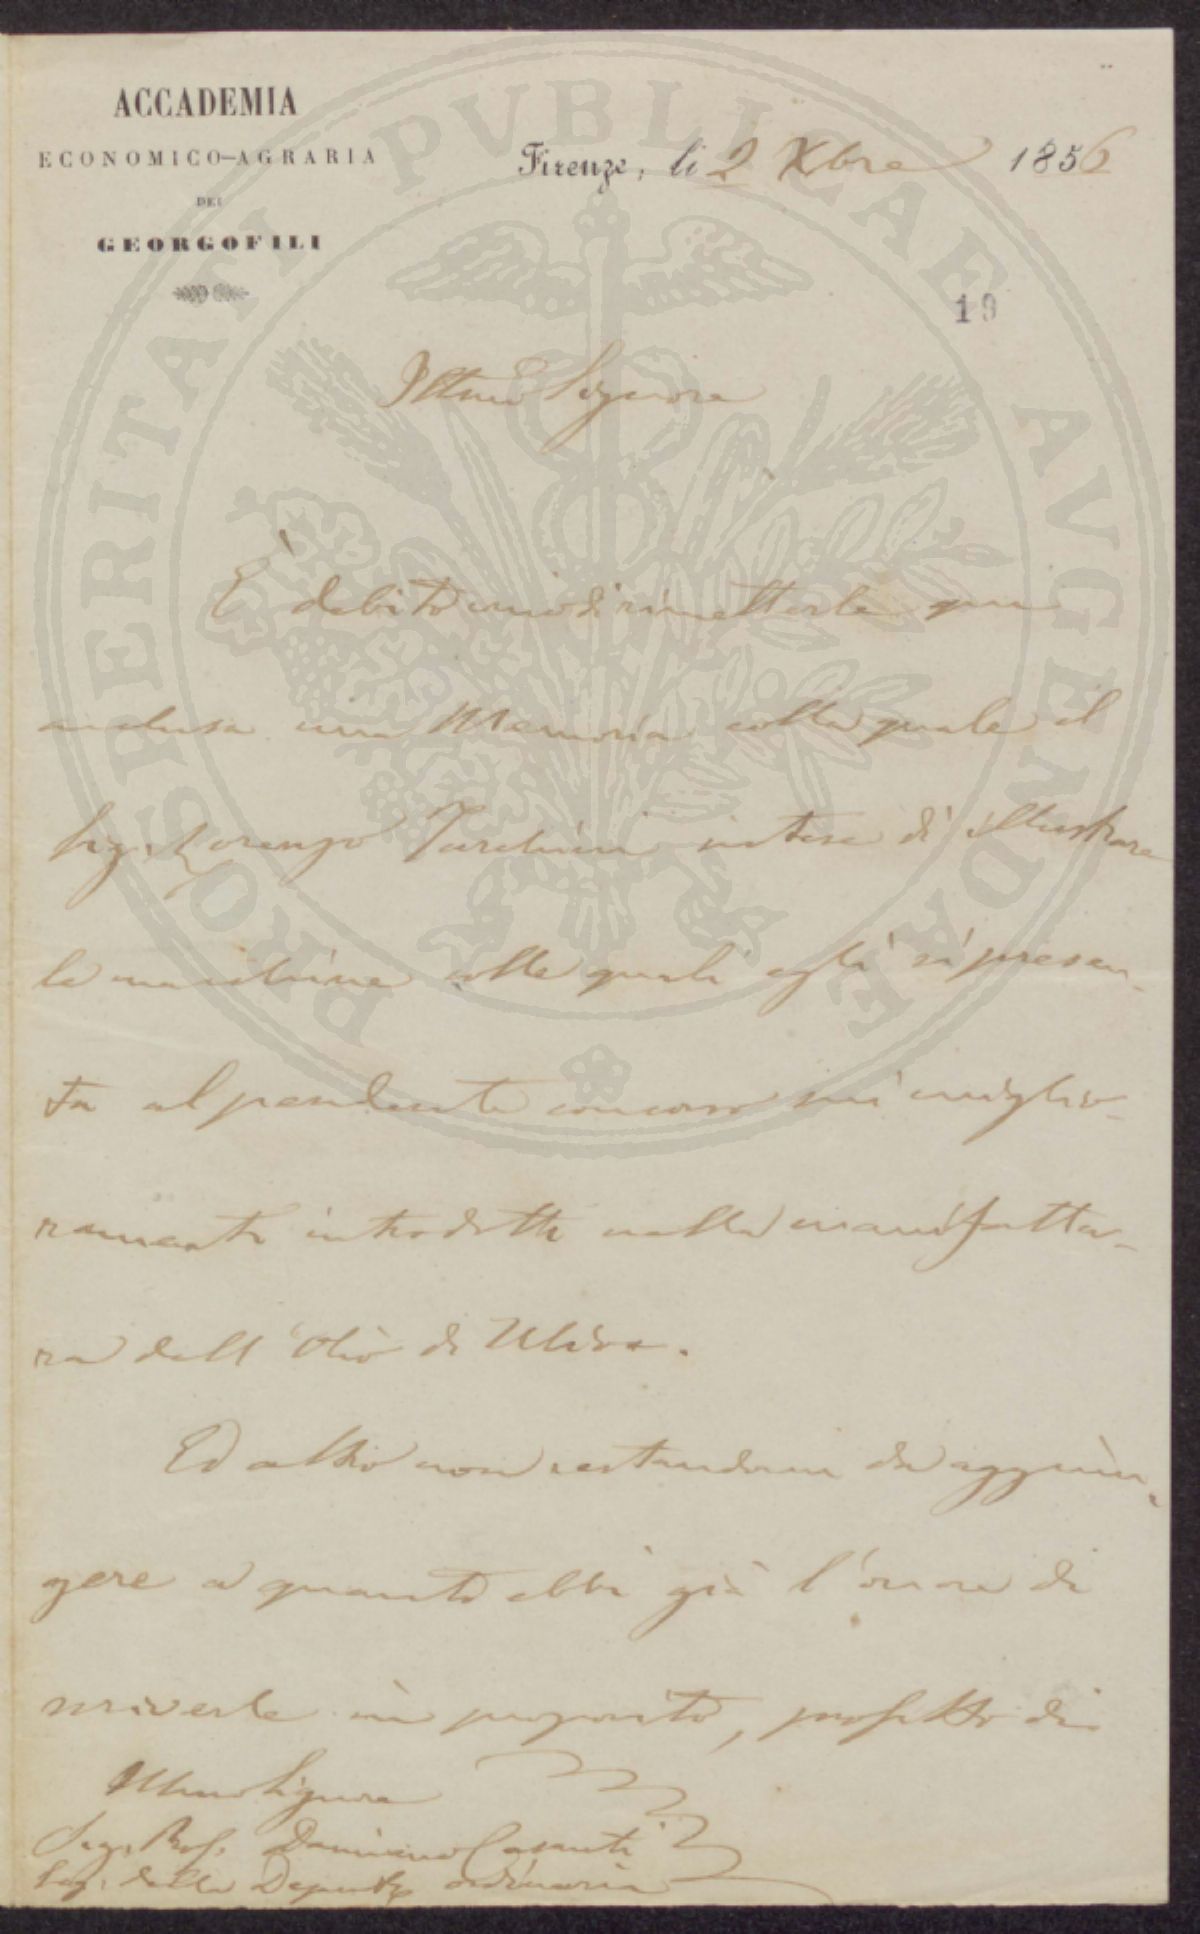 ACCADEMIA
ECONOMICO-AGRARIA
DEI
GEORGOFILI
Firenze, li 2 Xbre 1856
19
Illmo Signore
È debito mio di rimetterle qui
inclusa una Memoria colla quale il
Sig. Lorenzo Turchini intese di illustrare
le macchine colle quali egli si presen-
ta al pendente concorso sui miglio-
ramenti introdotti nella manifattu-
ra dell'Olio di Uliva.
Ed altro non restandomi da aggiun-
gere a quanto ebbi già l'onore di
scriverle in proposito, profitto di
Illmo Signore
Sig. Prof. Damiano Casanti
Seg. della Deputaz ordinaria
PROSPERITATI PVBLICAE AVGENDAE